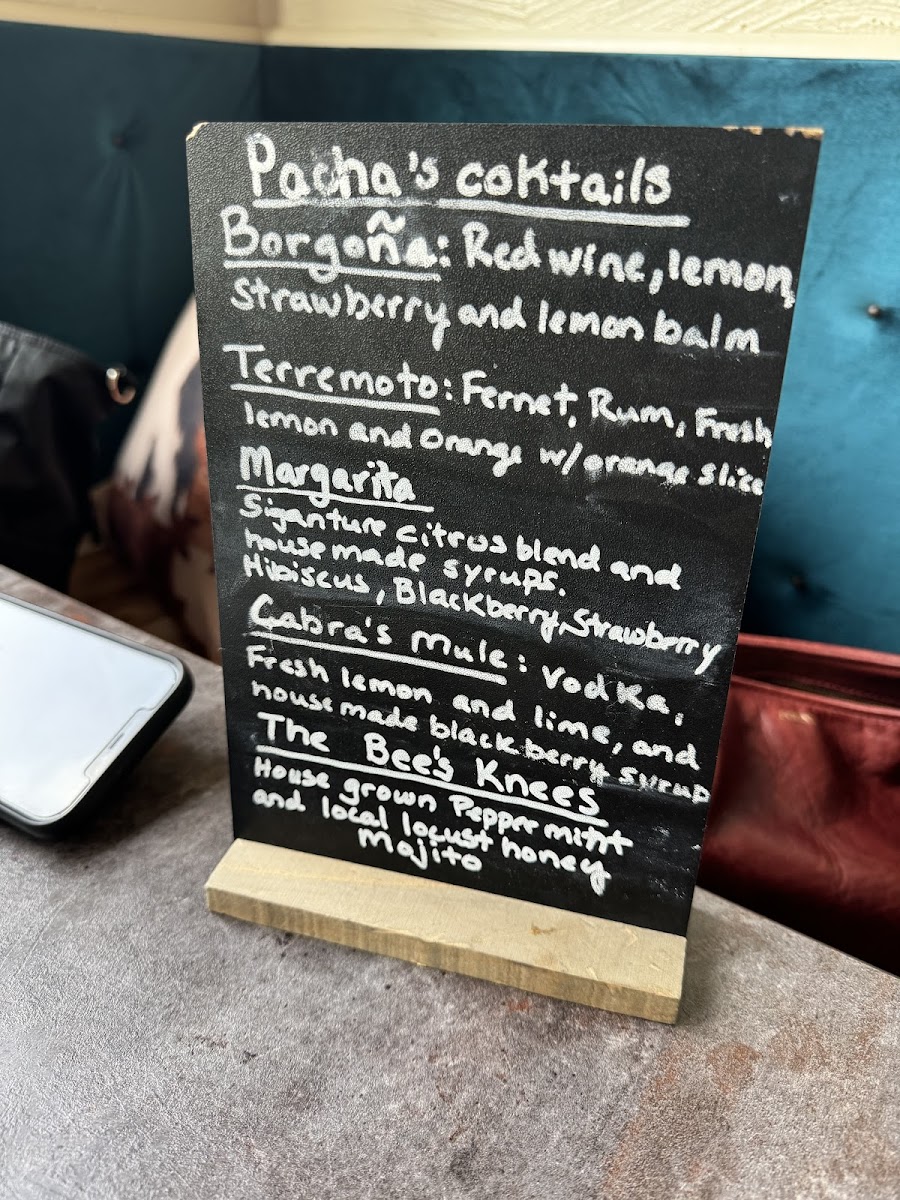 Pacha's coktails
Borgoña: Red wine, lemon,
Strawberry and lemon balm
Terremoto: Fernet, Rum, Fresh
lemon and Orange w/ orange slice
Margarita
Siganture citrus blend and
house made syrups.
Hibiscus, Blackberry, Strawberry
Cabra's Mule: Vodka,
Fresh lemon and lime, and
house made blackberry syrup
The Bee's Knees
House grown Peppermint
and local locust honey
Mojito